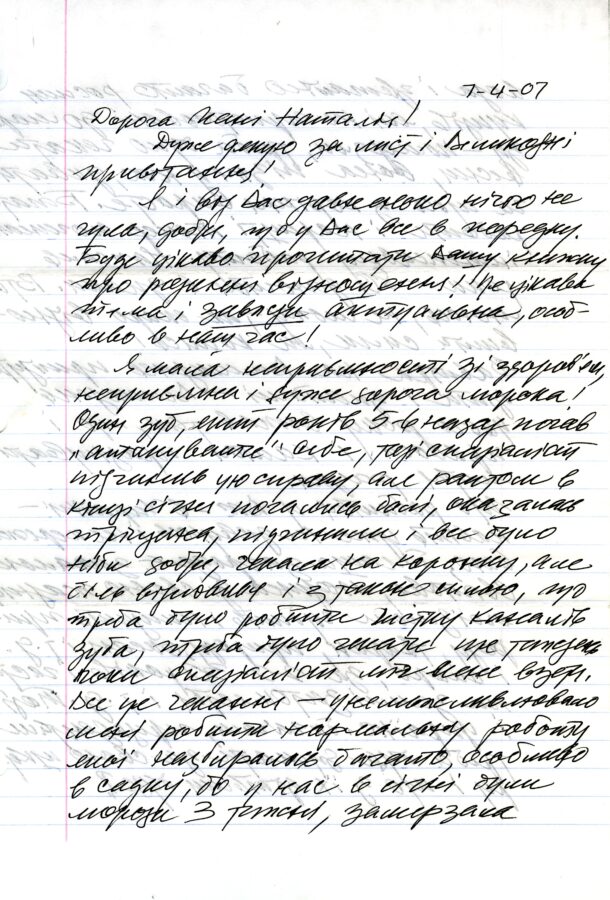 7-4-07
Дорога Пані Наталю!
Дуже дякую за лист і Великодні
привітання!
Я і від Вас давненько нічого не
чула, добре, що у Вас все в порядку.
Буде цікаво прочитати Вашу книжку
про родинні відносини! Це цікава
тема і завжди актуальна, особ-
ливо в наш час!
Я мала неприємності зі здоров'ям,
неприємна і дуже дорога морока!
Один зуб, який років 5-6 назад почав
"атакувати" себе, тоді спеціяліст
підчинив цю справу, але раптом в
кінці січня почались болі, оказалась
тріщина, підчинили і все було
ніби добре, чекала на коронку, але
біль відновився і з такою силою, що
треба було робити чистку каналів
зуба, треба було чекати ще тиждень
поки спеціяліст міг мене взяти.
Все це чекання — унеможливлювало
мені робити нормальну роботу
якої назбиралось багато, особливо
в садку, бо у нас в січні були
морози 3 тижні, замерзала